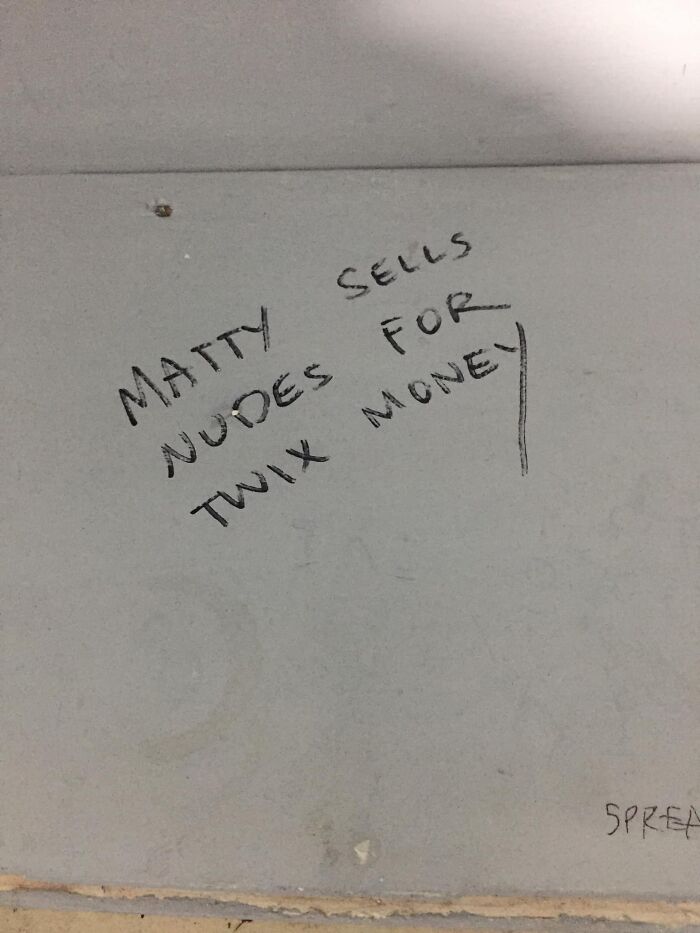 MATTY SELLS
NUDES FOR
TWIX MONEY
SPREA